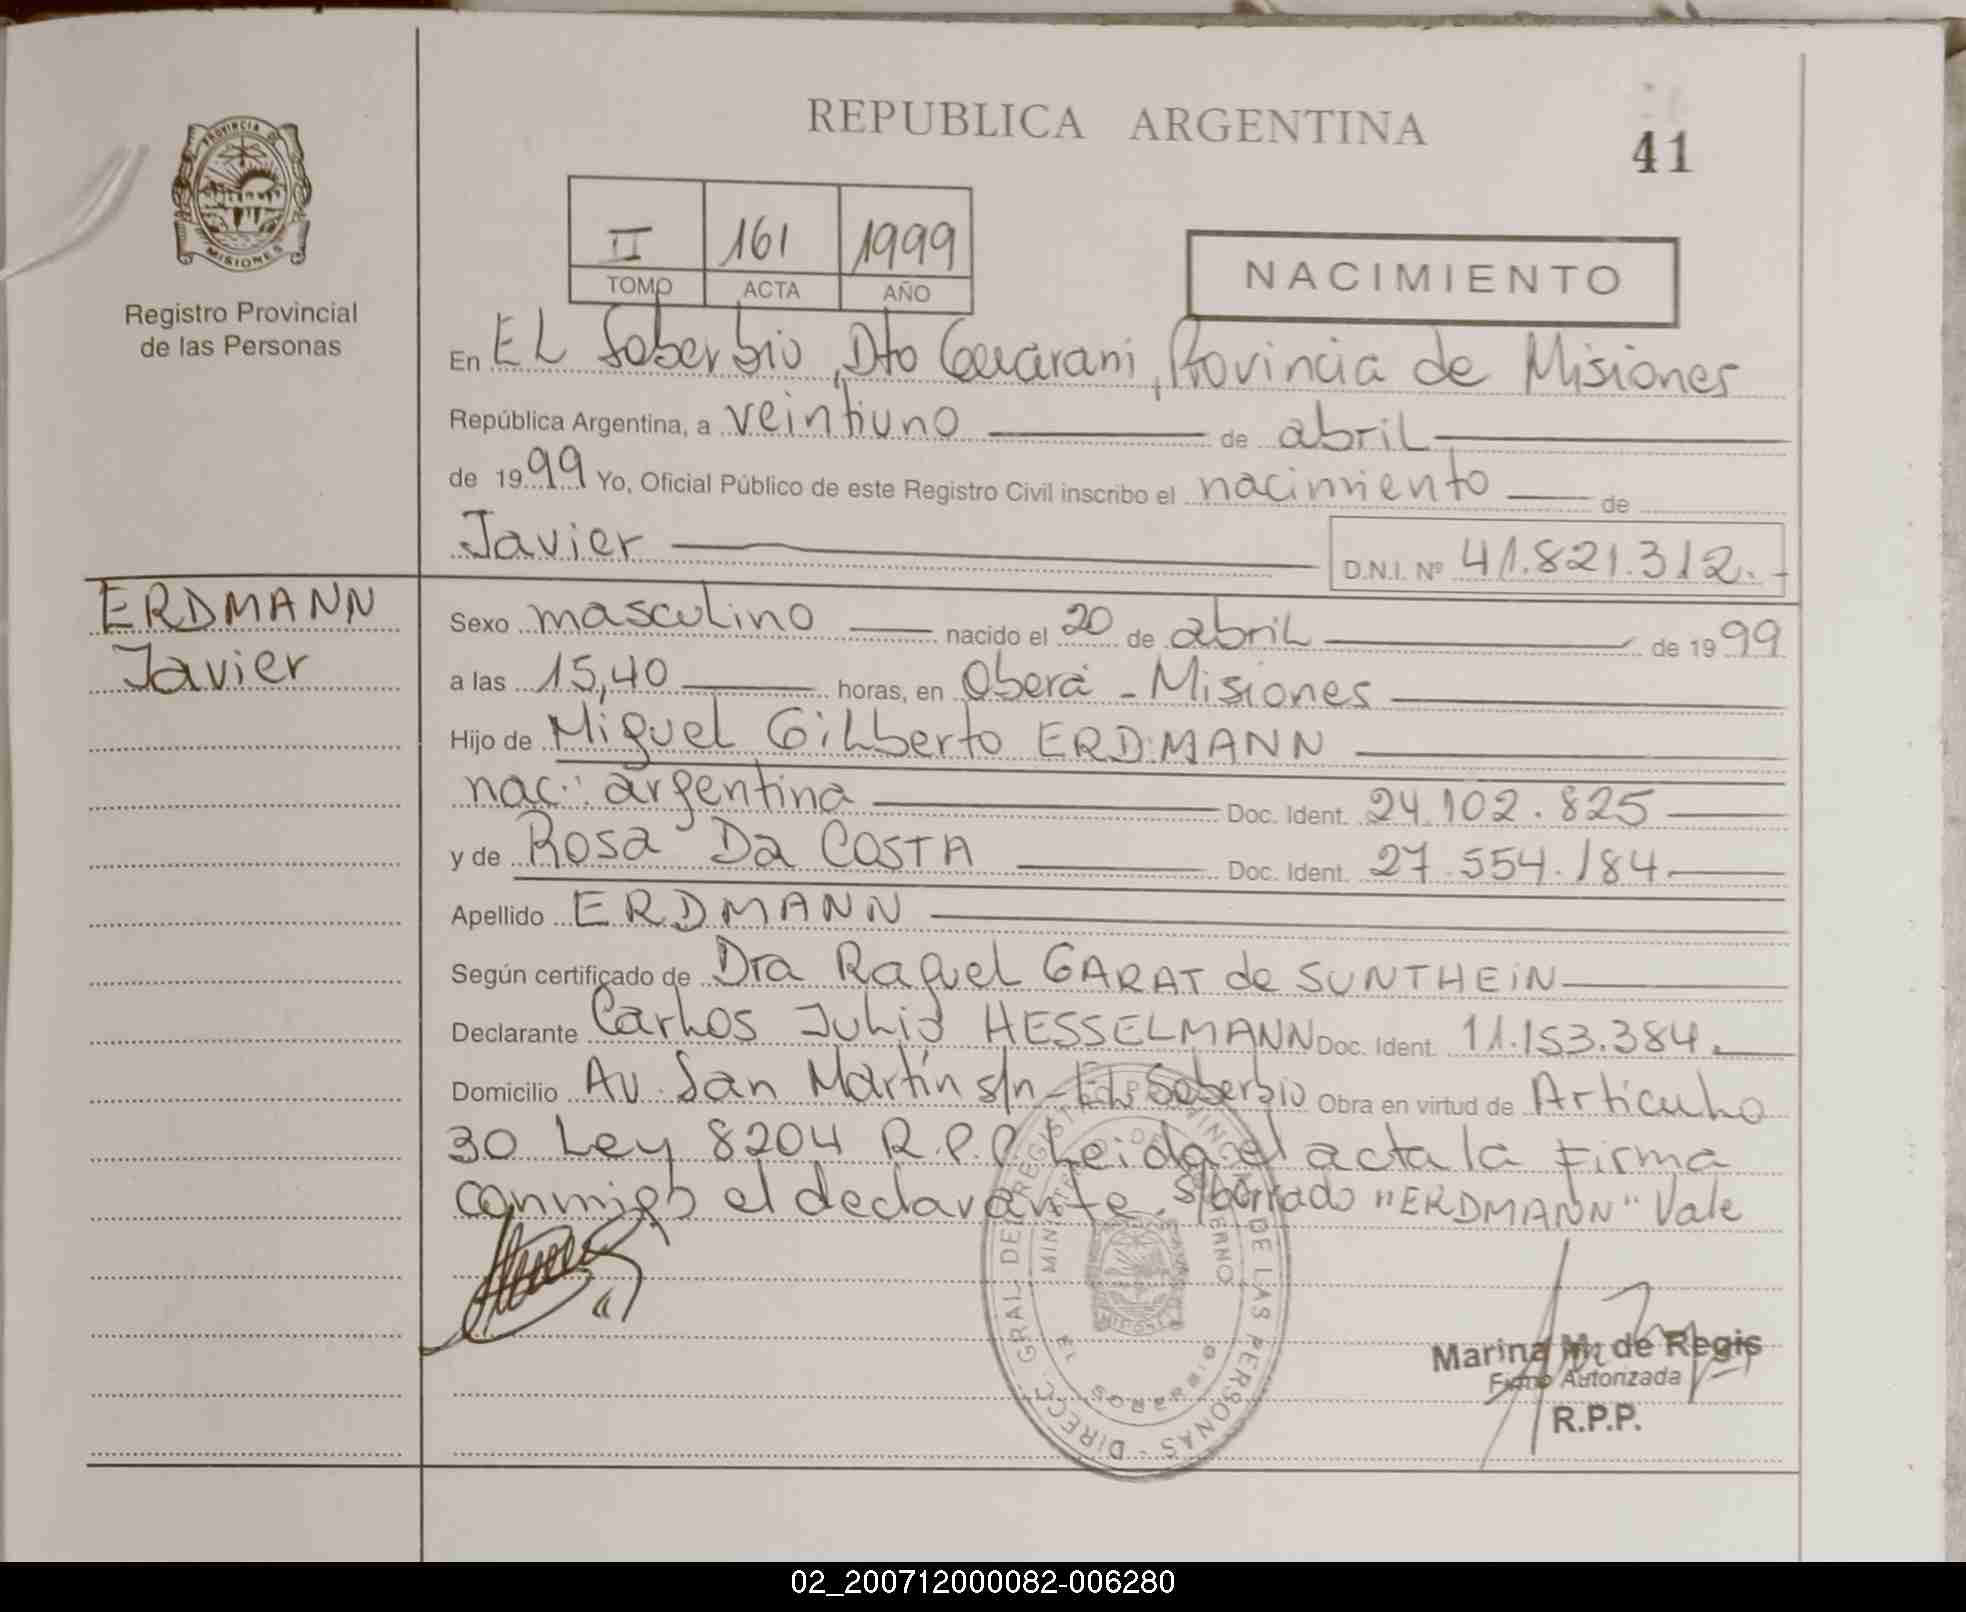 REPUBLICA ARGENTINA
41
PROVINCIA D
MISIONES
Registro Provincial
de las Personas
II 161 1999
TOMO ACTA AÑO
NACIMIENTO
En EL Soberbio, Dto Guarani, Provincia de Misiones
República Argentina, a veintiuno de abril
de 1999 Yo, Oficial Público de este Registro Civil inscribo el nacimiento de
Javier D.N.I. Nº 41.821.312.-
ERDMANN
Javier
Sexo masculino nacido el 20 de abril de 1999
a las 15,40 horas, en Oberá - Misiones
Hijo de Miguel Gilberto ERDMANN
nac: argentina Doc. Ident. 24.102.825
y de Rosa Da COSTA Doc. Ident. 27.554.184.
Apellido ERDMANN
Según certificado de Dra Raquel GARAT de SUNTHEIN
Declarante Carlos Julio HESSELMANN Doc. Ident. 11.153.384.
Domicilio Av. San Martín s/n - EL Soberbio Obra en virtud de Articulo
30 Ley 8204 R.P.P. Leida el acta la firma
conmigo el declarante. S/borrado "ERDMANN" Vale
DIRECC. GRAL. DEL REGIST DE LAS PERSONAS
EL SOBERBIO
Marina M. de Regis
Firma Autorizada
R.P.P.
02_200712000082-006280